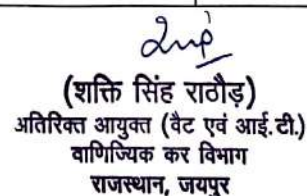 (शक्ति सिंह राठौड़)
अतिरिक्त आयुक्त (वैट एवं आई.टी.)
वाणिज्यिक कर विभाग
राजस्थान, जयपुर